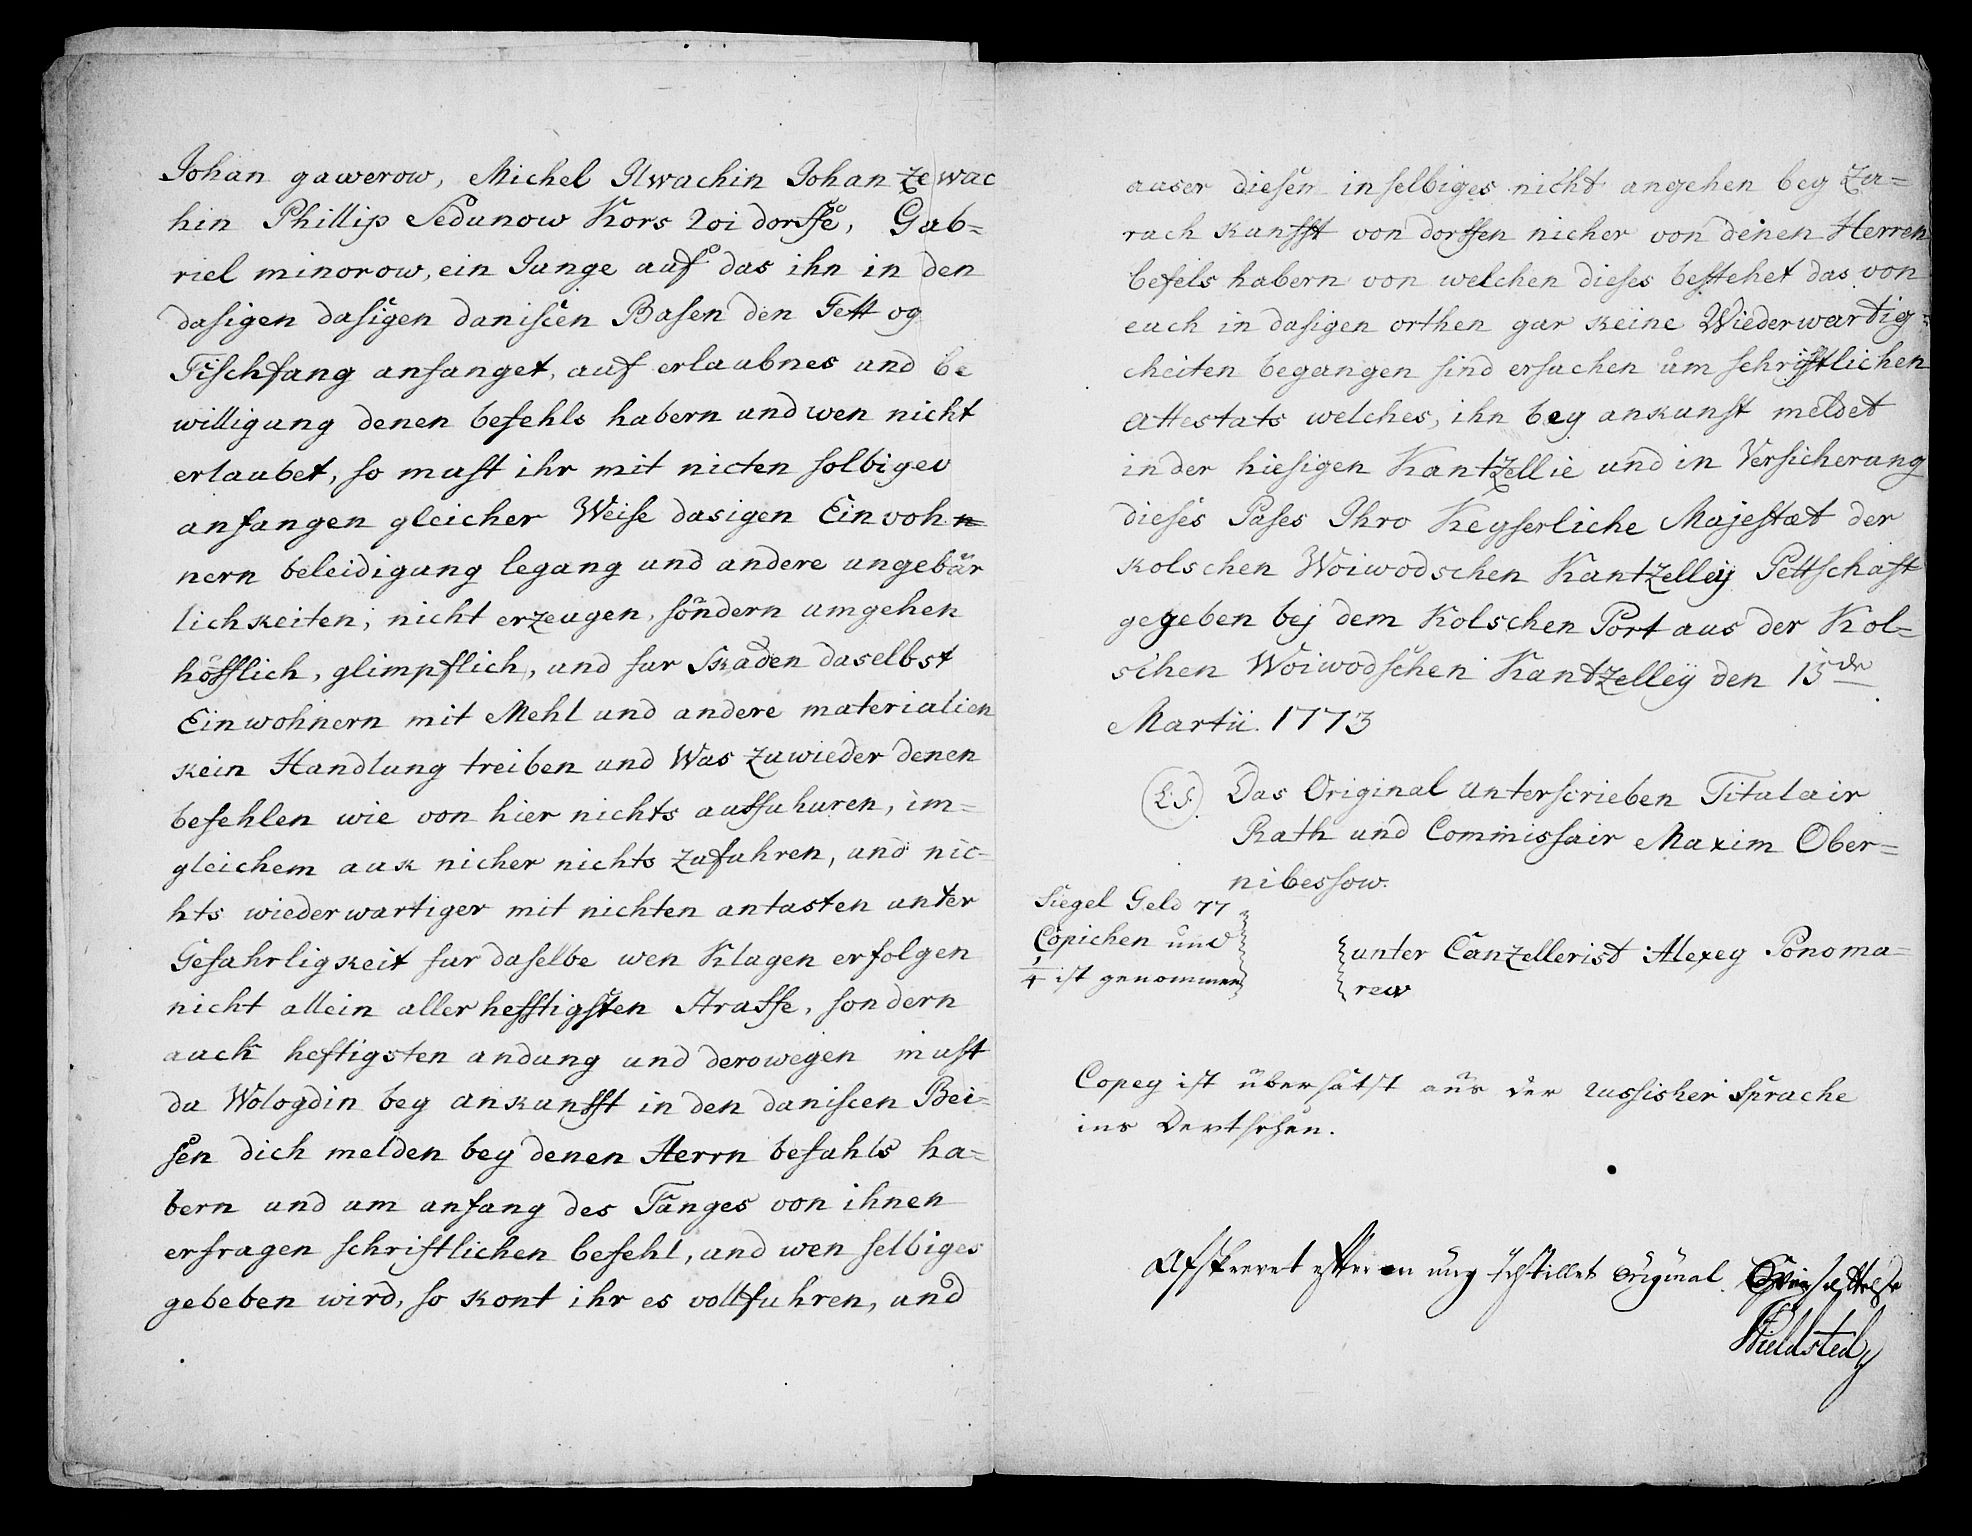 Johan gawerow, Michel Ilwachin Johan Zewac
hin Phillip Sedunow Kors 2oi dorffe, Gab=
riel minorow, ein Junge auf das ihn in den
dasigen dasigen daniscen Basen den Fett og
Fischfang anfanget, auf erlaubnes und be
willigung denen befehls habern und wen nicht
erlaubet, so must ihr mit nicten solbiger
anfangen gleicher Weise dasigen Einvohn=
nern beleidigung legang und andere ungebür
lichkeiten; nicht erzeugen, sondern umgehen
höfflich, glimpflich, und fur Skaden daselbst
Einwohnern mit Mehl und andere materialien
kein Handlung treiben und Was zuwieder denen
befehlen wie von hier nichts ausfuhuren, im=
gleichem auk nicher nichts zufuhren, und nic=
hts wiederwartiger mit nichten antasten unter
Gefahrligkeit fur daselbe wen Klagen erfolgen
nicht allein aller hefftigsten Straffe, sondern
auch heftigsten andung und derowegen must
du Wologdin bey ankunfft in den daniscen Bei=
sen dich melden bey denen Herrn befahls ha=
bern und um anfang des Fanges von ihnen
erfragen schriftlichen befehl, und wen selbiges
gebeben wird, so kont ihr es vollfuhren, und
auser diesen in selbiges nicht angehen bey Zu=
ruch kunfft von dorffen nicher von denen Herren
befels habern von welchen dieses bestehet das von
euch in dasigen orthen gar keine Wiederwartig=
cheiten begangen sind ersuchen um schriftlichen
Attestats welches, ihn bey ankunft meldet
in der hiesigen Kantzellie und in Versicherung
dieses Pases Ihro Keyserliche Majestæt der
kolschen Woiwodschen Kantzelleÿ Pettschaft
gegeben bej dem Kolschen Port aus der Kol=
schen Woiwodschen Kantzelleÿ den 15de
Martii. 1773
(L.S.) Das Original unterscrieben Titulair
Rath und Commissair Maxim Ober=
nibessow.
Siegel Geld 77
Copichen und
1/4 ist genommen
unter Canzellerist Alexey Ponoma=
rew
Copey ist übersätst aus der russisher Sprache
ins Deutschen.
Afskrevet efter en mig tilstillet Original.
Fieldsted